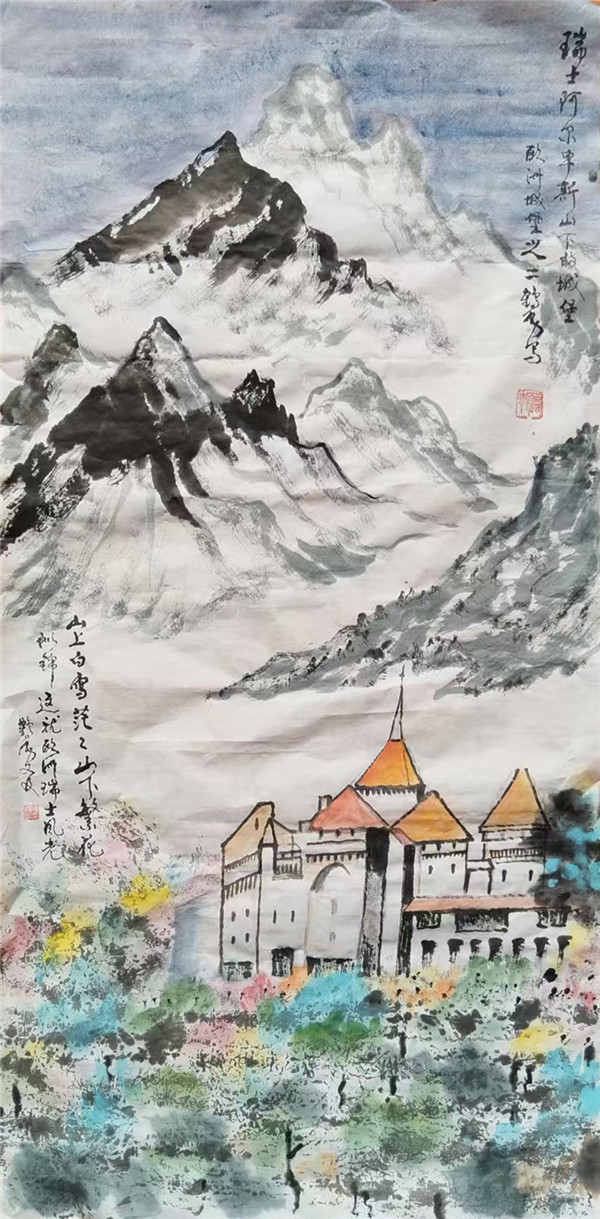 瑞士阿尔卑斯山下的城堡
欧洲城堡之二 写
山上白雪茫々山下繁花
似锦 这就欧洲瑞士风光
又